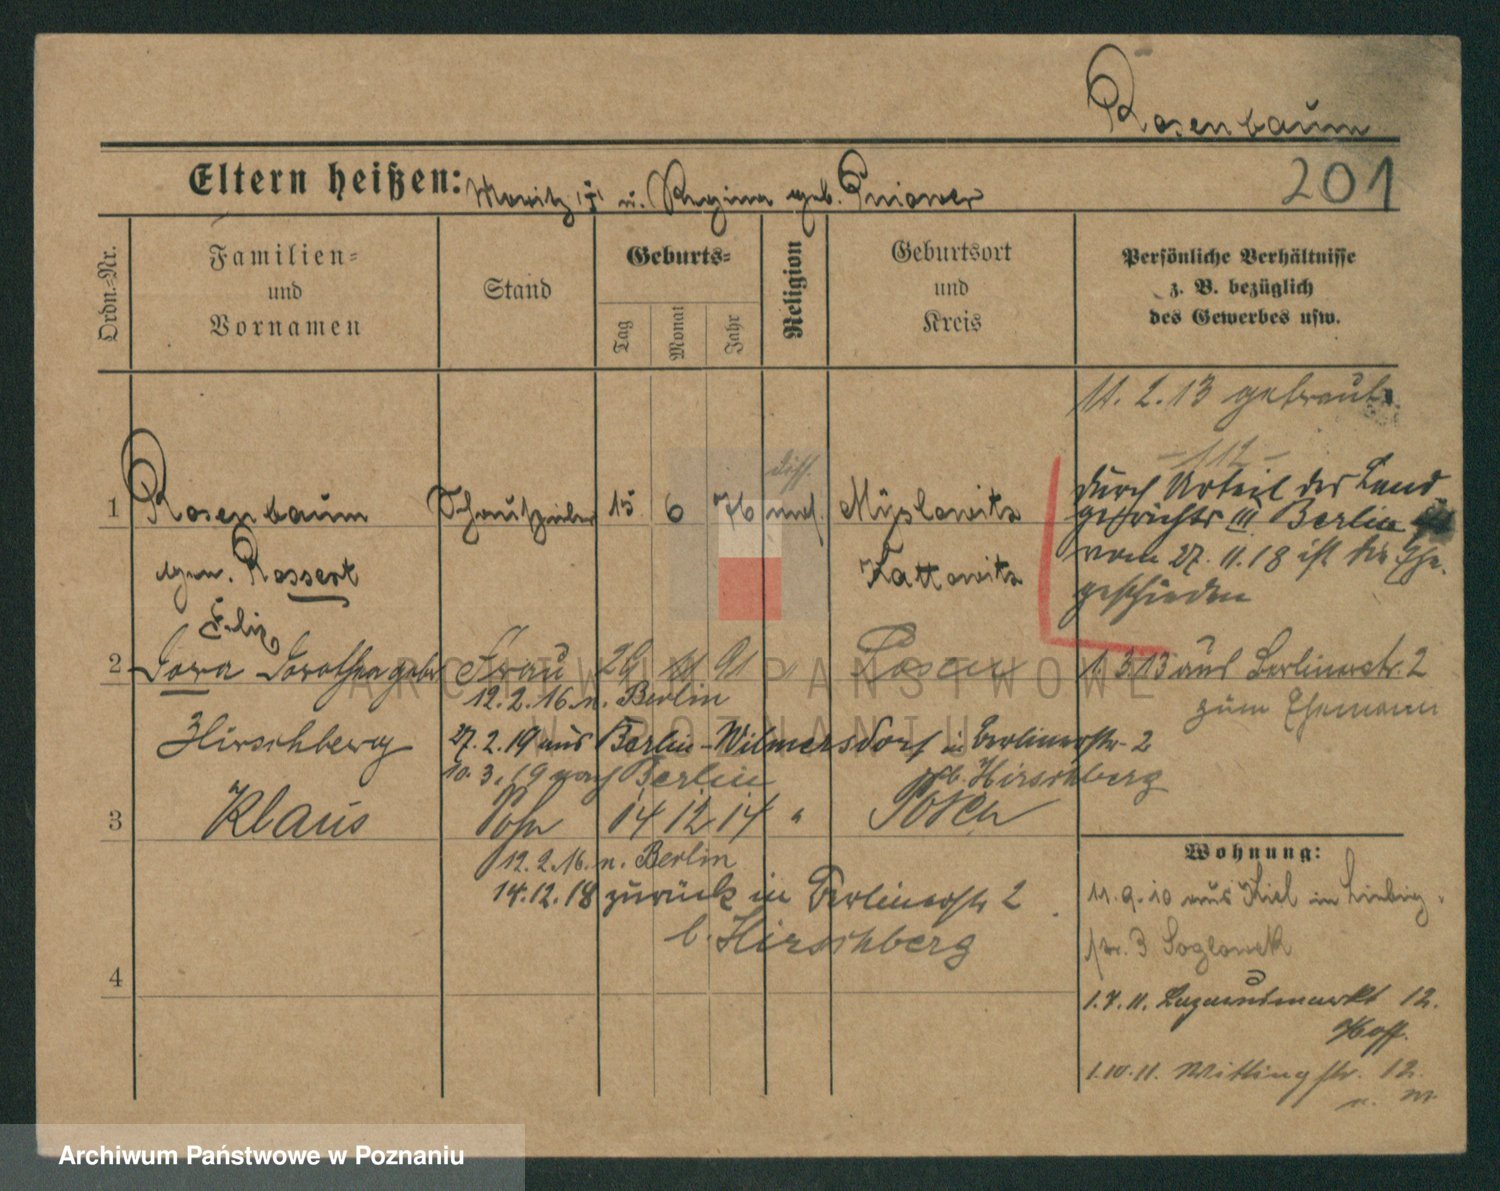 Rosenbaum
201
Eltern heißen: Moritz u. Regina geb. Pniower
Ordn.-Nr.
Familien-
und
Vornamen
Stand
Geburts-
Tag
Monat
Jahr
Religion
Geburtsort
und
Kreis
Persönliche Verhältnisse
z. B. bezüglich
des Gewerbes usw.
11. 2. 13 getraut
diss.
1 Rosenbaum 15 6 76 Myslowitz
gen. Rossert Kattowitz
durch Urteil des Land
gerichts III Berlin
vom 27. 11. 18 ist die Ehe
geschieden
2 Dora Dorothea geb. Frau 29 91 Posen
3. 13 aus Berlinerstr. 2
zum Ehemann
12. 2. 16. n. Berlin
Hirschberg 27. 2. 19 aus Berlin-Wilmersdorf in Berlinerstr. 2
10. 3. 19 nach Berlin b. Hirschberg
3 Klaus Sohn 14 12 14 " Posen
12. 2. 16. n. Berlin
14. 12. 18 zurück in Berlinerstr 2
b. Hirschberg
4
Wohnung:
11. 9. 10 aus Kiel in Liebig-
str. 3
1. 7. 11. Lazarusmarkt 12.
Hoff.
1. 10. 11. Wittingstr. 12.
ARCHIWUM PAŃSTWOWE
W POZNANIU
Archiwum Państwowe w Poznaniu